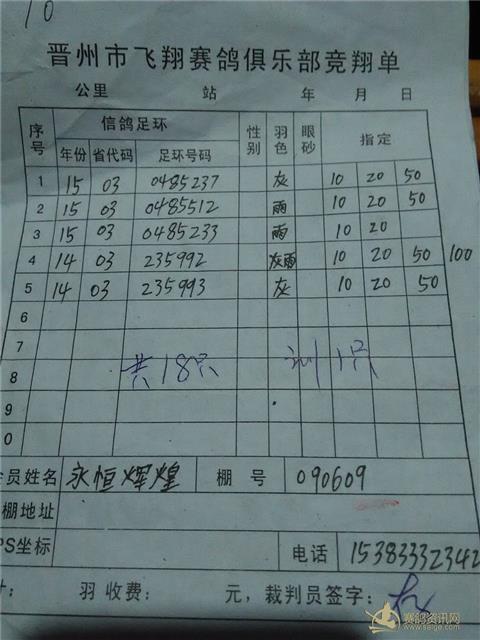 10
晋州市飞翔赛鸽俱乐部竞翔单
公里 站 年 月 日
序号 信鸽足环 性别 羽色 眼砂 指定
年份 省代码 足环号码
1 15 03 0485237 灰 10 20 50
2 15 03 0485512 雨 10 20 50
3 15 03 0485233 雨 10 20
4 14 03 235992 灰雨 10 20 50 100
5 14 03 235993 灰 10 20 50
6
7
8 共18只 训1只
9
0
员姓名 永恒辉煌 棚号 090609
棚地址
PS坐标 电话 15383332342
羽 收费: 元,裁判员签字:
赛鸽资讯网
www.saige.com